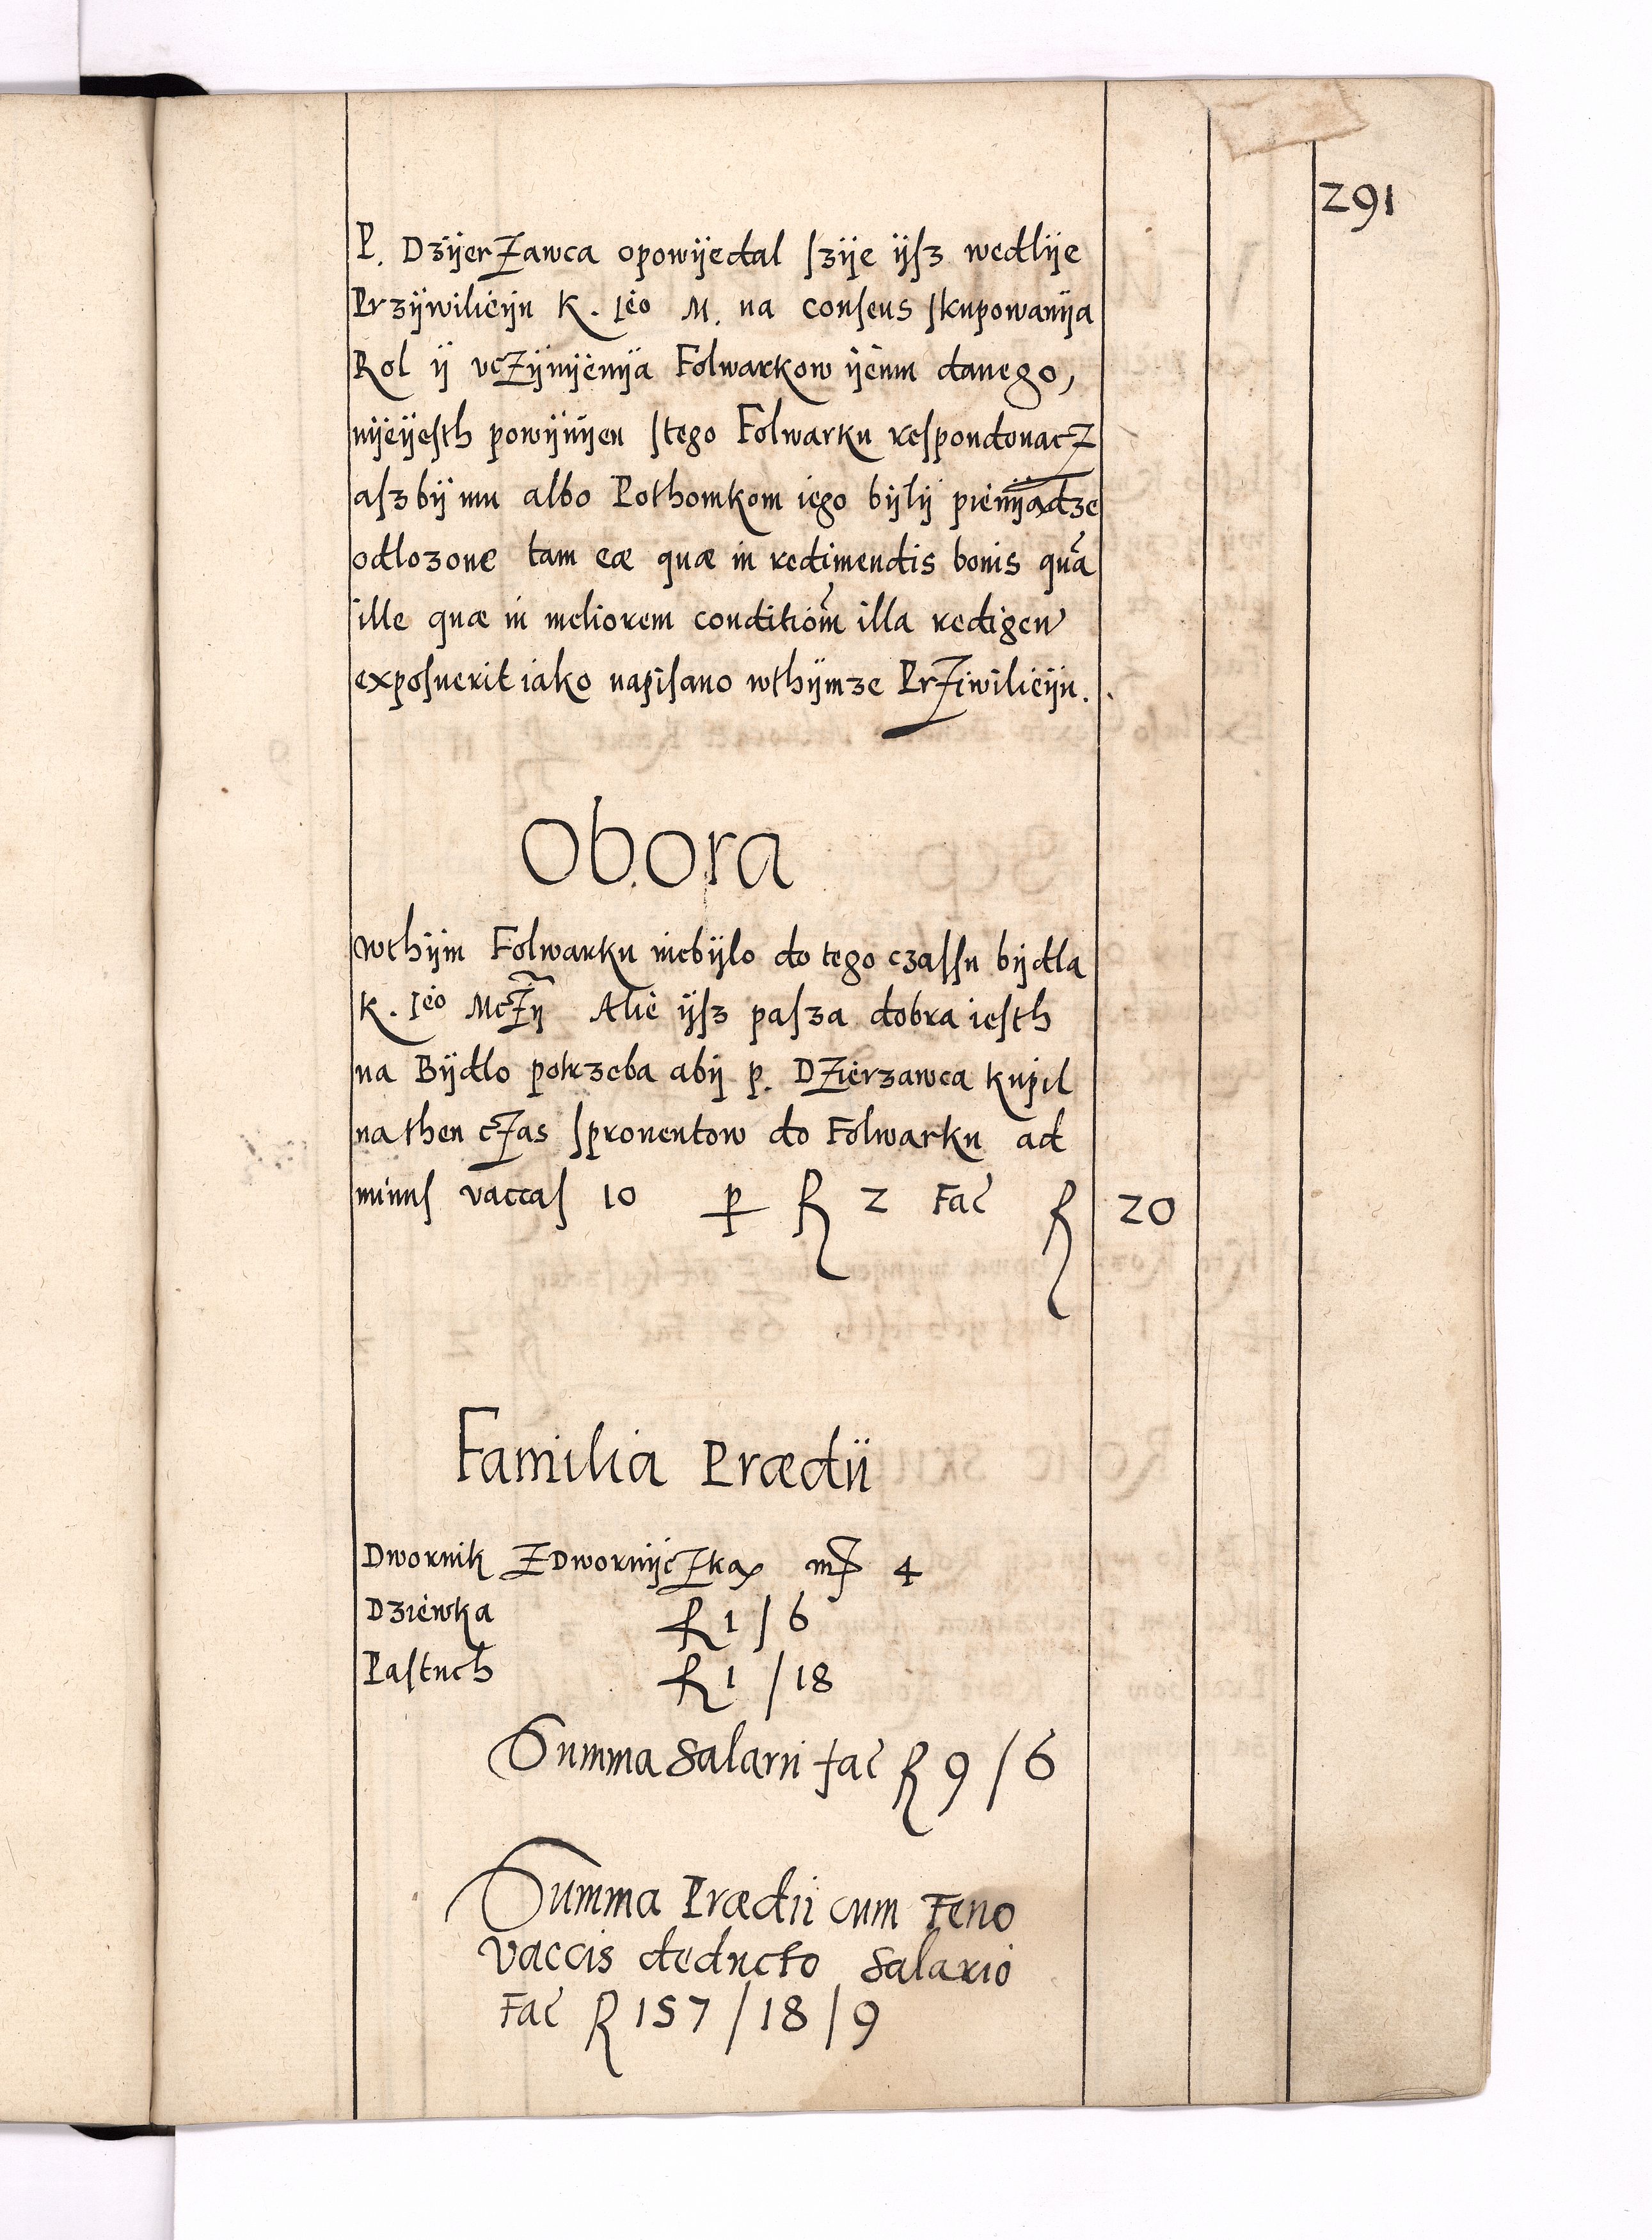 291
P. Dzÿerzawca opowÿedal szÿe ÿsz wedlÿe
Przÿwilieÿu K. Ieo M. na consens skupowanÿa
Rol ÿ vczÿnÿenÿa Folwarkow ÿemu danego,
nÿeÿesth powÿnÿen stego Folwarku respondowacz
aszbÿ mu albo Pothomkom iego bÿlÿ pienÿądze
odlozone tam eæ quæ in redimendis bonis quã
ille quæ in meliorem conditiom̃ illa redigen
exposuerit iako napisano wthÿmze Prziwilieÿu.
Obora
wthÿm Folwarku niebÿlo do tego czassu bÿdla
K. Ieo Mczÿ Alie ÿsz pasza dobra iesth
na Bÿdlo potrzeba abÿ p. Dzierzawca kupil
na then czas sprouentow do Folwarku ad
minus vaccas 10 ꝑ R 2 Fac R 20
Familia Prædii
Dwornik ZDwornÿczką mz 4
Dziewka R 1 / 6
Pastuch R 1 / 18
Summa Salarii fac R 9 / 6
Summa Prædii cum Feno
vaccis deducto Salario
Fac R 157 / 18 / 9